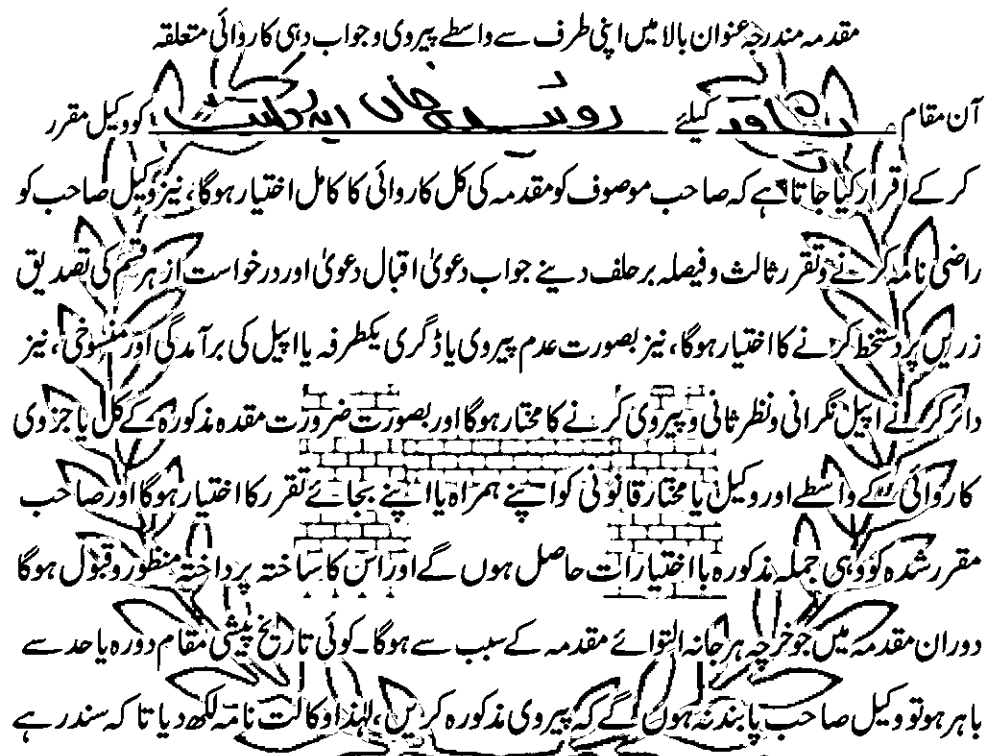 مقدمہ مندرجہ عنوان بالا میں اپنی طرف سے واسطے پیروی و جواب دہی کاروائی متعلقہ
آن مقام پشاور کیلئے خان ایڈوکیٹ کو وکیل مقرر
کر کے اقرار کیا جاتا ہے کہ صاحب موصوف کو مقدمہ کی کل کاروائی کا کامل اختیار ہوگا، نیز وکیل صاحب کو
راضی نامہ کرنے و تقرر ثالث و فیصلہ بر حلف دینے جواب دعویٰ اقبال دعویٰ اور درخواست از ہر قسم کی تصدیق
زریں پر دستخط کرنے کا اختیار ہوگا، نیز بصورت عدم پیروی یا ڈگری یکطرفہ یا اپیل کی برآمدگی اور منسوخی، نیز
دائر کرنے اپیل نگرانی و نظر ثانی و پیروی کرنے کا مختار ہوگا اور بصورت ضرورت مقدہ مذکورہ کے کل یا جزوی
کاروائی کے واسطے اور وکیل یا مختار قانونی کو اپنے ہمراہ یا اپنے بجائے تقرر کا اختیار ہوگا اور صاحب
مقرر شدہ کو وہی جملہ مذکورہ با اختیارات حاصل ہوں گے اور اس کا ساختہ پرداختہ منظور و قبول ہوگا
دوران مقدمہ میں جو خرچہ ہرجانہ التوائے مقدمہ کے سبب سے ہوگا۔ کوئی تاریخ پیشی مقام دورہ یا حد سے
باہر ہو تو وکیل صاحب پابند نہ ہوں گے کہ پیروی مذکورہ کریں، لہٰذا وکالت نامہ لکھ دیا تا کہ سند رہے